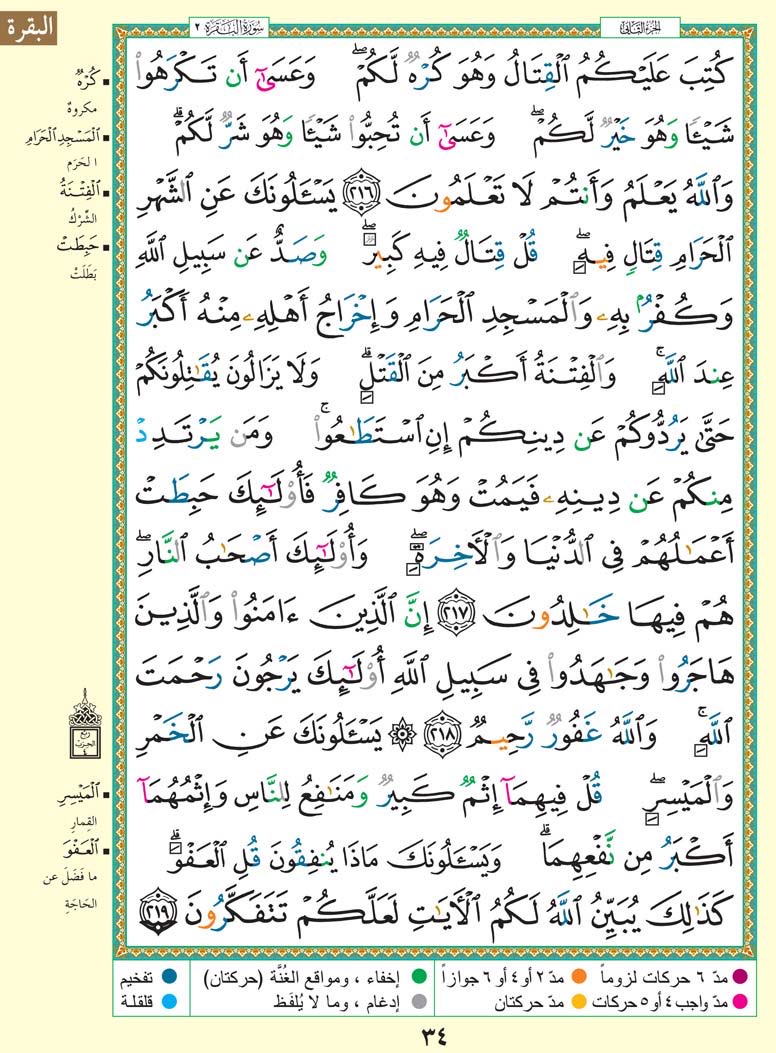 البقرة
الجزء الثاني
سورة البقرة ٢
كُتِبَ عَلَيْكُمُ ٱلْقِتَالُ وَهُوَ كُرْهٌ لَّكُمْ ۖ وَعَسَىٰٓ أَن تَكْرَهُوا۟
شَيْـًٔا وَهُوَ خَيْرٌ لَّكُمْ ۖ وَعَسَىٰٓ أَن تُحِبُّوا۟ شَيْـًٔا وَهُوَ شَرٌّ لَّكُمْ ۗ
وَٱللَّهُ يَعْلَمُ وَأَنتُمْ لَا تَعْلَمُونَ ﴿٢١٦﴾ يَسْـَٔلُونَكَ عَنِ ٱلشَّهْرِ
ٱلْحَرَامِ قِتَالٍ فِيهِ ۖ قُلْ قِتَالٌ فِيهِ كَبِيرٌ ۖ وَصَدٌّ عَن سَبِيلِ ٱللَّهِ
وَكُفْرٌۢ بِهِۦ وَٱلْمَسْجِدِ ٱلْحَرَامِ وَإِخْرَاجُ أَهْلِهِۦ مِنْهُ أَكْبَرُ
عِندَ ٱللَّهِ ۚ وَٱلْفِتْنَةُ أَكْبَرُ مِنَ ٱلْقَتْلِ ۗ وَلَا يَزَالُونَ يُقَـٰتِلُونَكُمْ
حَتَّىٰ يَرُدُّوكُمْ عَن دِينِكُمْ إِنِ ٱسْتَطَـٰعُوا۟ ۚ وَمَن يَرْتَدِدْ
مِنكُمْ عَن دِينِهِۦ فَيَمُتْ وَهُوَ كَافِرٌ فَأُو۟لَـٰٓئِكَ حَبِطَتْ
أَعْمَـٰلُهُمْ فِى ٱلدُّنْيَا وَٱلْـَٔاخِرَةِ ۖ وَأُو۟لَـٰٓئِكَ أَصْحَـٰبُ ٱلنَّارِ ۖ
هُمْ فِيهَا خَـٰلِدُونَ ﴿٢١٧﴾ إِنَّ ٱلَّذِينَ ءَامَنُوا۟ وَٱلَّذِينَ
هَاجَرُوا۟ وَجَـٰهَدُوا۟ فِى سَبِيلِ ٱللَّهِ أُو۟لَـٰٓئِكَ يَرْجُونَ رَحْمَتَ
ٱللَّهِ ۚ وَٱللَّهُ غَفُورٌ رَّحِيمٌ ﴿٢١٨﴾ ۞ يَسْـَٔلُونَكَ عَنِ ٱلْخَمْرِ
وَٱلْمَيْسِرِ ۖ قُلْ فِيهِمَآ إِثْمٌ كَبِيرٌ وَمَنَـٰفِعُ لِلنَّاسِ وَإِثْمُهُمَآ
أَكْبَرُ مِن نَّفْعِهِمَا ۗ وَيَسْـَٔلُونَكَ مَاذَا يُنفِقُونَ قُلِ ٱلْعَفْوَ ۗ
كَذَٰلِكَ يُبَيِّنُ ٱللَّهُ لَكُمُ ٱلْـَٔايَـٰتِ لَعَلَّكُمْ تَتَفَكَّرُونَ ﴿٢١٩﴾
كُرْهٌ
مكروهٌ
ٱلْمَسْجِدِ ٱلْحَرَامِ
الحَرَم
ٱلْفِتْنَةُ
الشِّرْكُ
حَبِطَتْ
بَطَلَتْ
ربع
الحزب
٤
ٱلْمَيْسِرِ
القِمارِ
ٱلْعَفْوَ
ما فَضَلَ عن
الحَاجَةِ
مدّ ٦ حركات لزوماً
مدّ ٢ أو ٤ أو ٦ جوازاً
إخفاء ، ومواقع الغُنَّة (حركتان)
تفخيم
مدّ واجب ٤ أو ٥ حركات
مدّ حركتان
إدغام ، وما لا يُلفَظ
قلقلة
٣٤